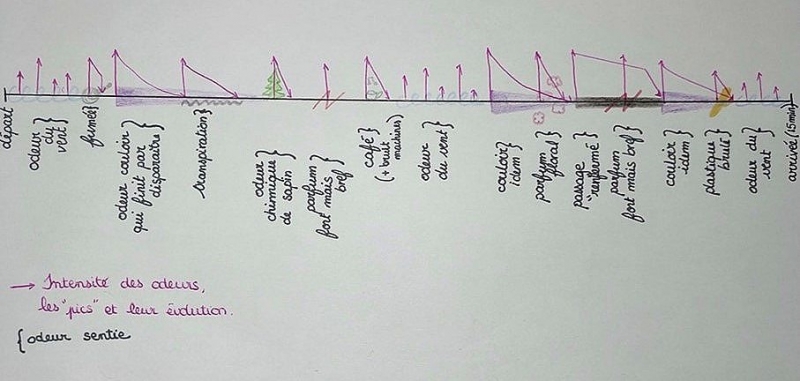 départ
odeur
du
vent
fumée
odeur couloir
qui finit par
disparaître
transpiration
odeur
chimique
de sapin
parfum
fort mais
bref
café
(+ bruit
odeur
du vent
couloir
idem
parfum
floral
passage
"renfermé"
parfum
fort mais bref
couloir
idem
plastique
brulé
odeur du
vent
arrivée (15min)
→ Intensité des odeurs,
les "pics" et leur évolution.
{odeur sentie